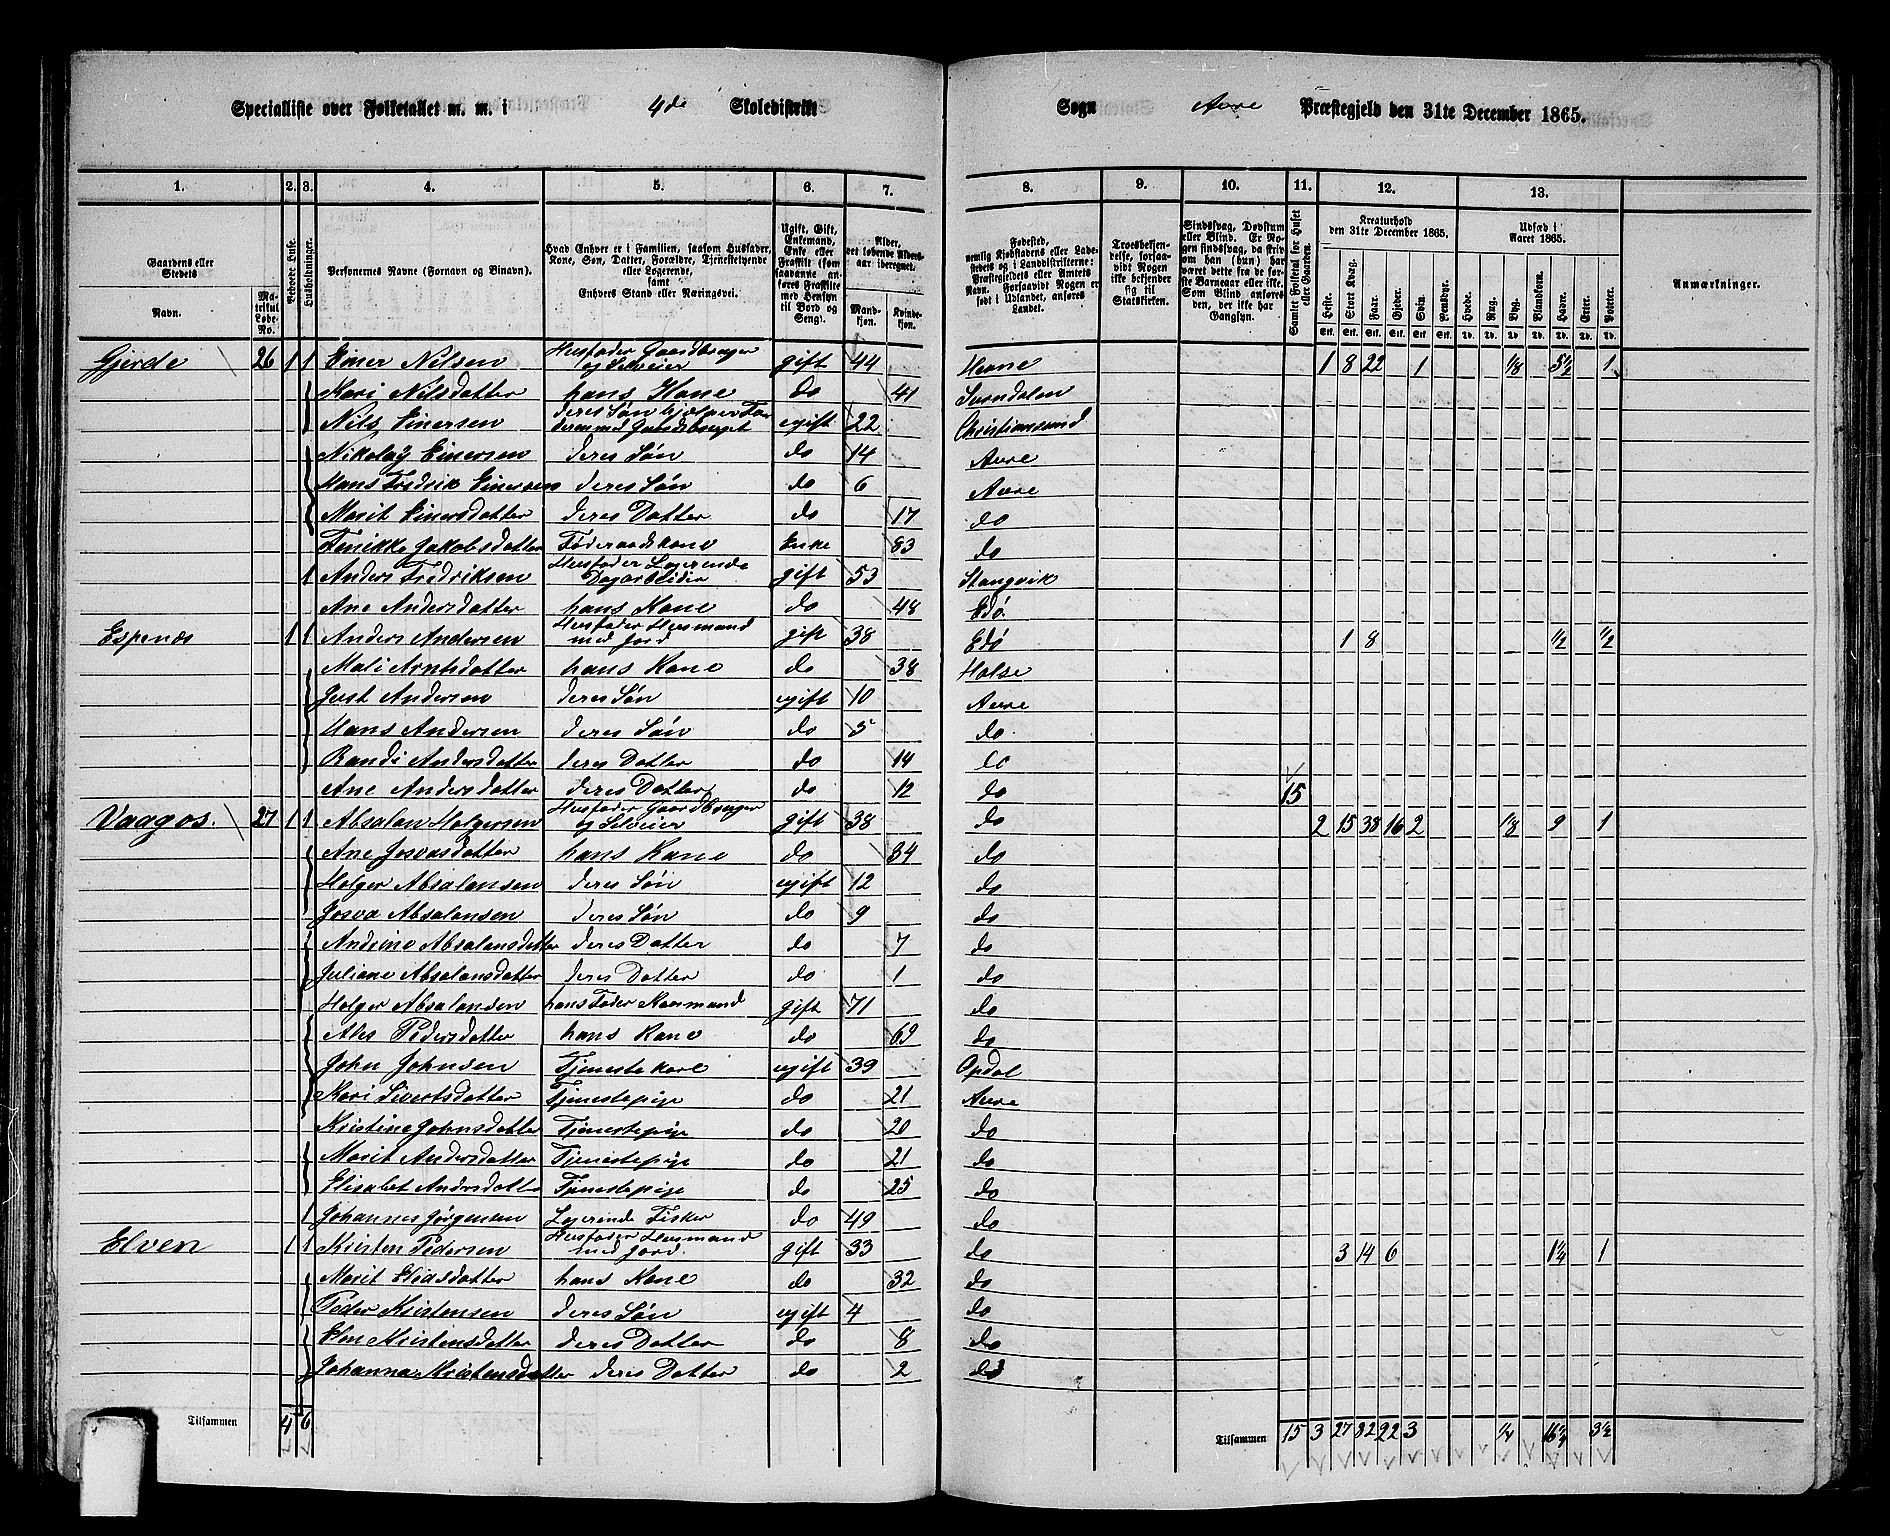 Specialliste over Folketallet m. m. i 4de Skoledistrikt Sogn Aure Præstegjeld den 31te December 1865.
1. 2. 3. 4. 5. 6. 7. 8. 9. 10. 11. 12. 13.
Gaardens eller Stedets
Navn.
Matrikul Løbe-No.
Beboede Huse.
Husholdninger.
Personernes Navne (Fornavn og Binavn).
Hvad Enhver er i Familien, saasom Husfader, Kone, Søn, Datter, Forældre, Tjenestetyende eller Logerende, samt Enhvers Stand eller Næringsvei.
Ugift, Gift, Enkemand, Enke eller Fraskilt (som saadanne anføres Fraskilte med Hensyn til Bord og Seng).
Alder, det løbende Aldersaar iberegnet.
Mandkjøn. Kvindekjøn.
Fødested, nemlig Kjøbstadens eller Ladestedets og i Landdistrikterne: Præstegjeldets eller Amtets Navn. Forsaavidt Nogen er født i Udlandet, anføres Landet.
Troesbekjendelse, forsaavidt Nogen ikke bekjender sig til Statskirken.
Sindssvag, Døvstum eller Blind. Er Nogen sindssvag, da skrives om han (hun) har været dette fra de første Barneaar eller ikke. Som Blind anføres den, der ikke har Gangsyn.
Samlet Folketal for Huset eller Gaarden.
Kreaturhold den 31te December 1865.
Heste. Stort Kvæg. Faar. Gjeder. Svin. Rensdyr.
Udsæd i Aaret 1865.
Hvede. Rug. Byg. Blandkorn. Havre. Erter. Poteter.
Anmærkninger.
Gjerde 26 1 1 Einer Nilsen Husfader Gaardbruger og Selveier gift 44 Hevne 1 8 22 1 1/8 5 1/2 1
Kari Nilsdatter hans Kone do 41 Surndalen
Nils Einersen deres Søn hjælper Faderen med Gaardsbruget ugift 22 Christiansund
Nikolaÿ Einersen deres Søn do 14 Aure
Hans Fredrik Einersen deres Søn do 6 Aure
Marit Einersdatter deres Datter do 17 do
Finikke Jakobsdatter Føderaadskone Enke 83 do
1 Anders Fredriksen Husfader Logerende Dagarbeider gift 53 Stangvik
Ane Andersdatter hans Kone do 48 Edø
Espenæs 1 1 Anders Andersen Husfader Husmand med Jord gift 38 Edø 1 8 1/2 1/2
Mali Arntsdatter hans Kone do 38 Halse
Just Andersen deres Søn ugift 10 Aure
Hans Andersen deres Søn do 5 do
Randi Andersdatter deres Datter do 14 do
Ane Andersdatter deres Datter do 12 do 15
Vaagos. 27 1 1 Absalon Holgersen Husfader Gaardbruger og Selveier gift 38 do 2 15 38 16 2 1/8 9 1
Ane Josvasdatter hans Kone do 34 do
Holger Absalonsen deres Søn ugift 12 do
Josva Absalonsen deres Søn do 9 do
Andrine Absalonsdatter deres Datter do 7 do
Juliane Absalonsdatter deres Datter do 1 do
Holger Absalonsen hans Fader Kaarmand gift 71 do
Ales Pedersdatter hans Kone do 69 do
John Johnsen Tjenestekarl ugift 39 Opdal
Kari Sivertsdatter Tjenestepige do 21 Aure
Kristine Johnsdatter Tjenestepige do 20 do
Marit Andersdatter Tjenestepige do 21 do
Elisabet Andersdatter Tjenestepige do 25 do
1 Johannes Jørgensen Logerende Fisker do 49 do
Elven 1 1 Kristen Pedersen Husfader Husmand med Jord gift 33 do 3 14 6 1 1/4 1
Marit Eliasdatter hans Kone do 32 do
Peder Kristensen deres Søn ugift 4 do
Elen Kristensdatter deres Datter do 8 do
Johanna Kristensdatter deres Datter do 2 do
Tilsammen 4 6 Tilsammen 15 3 27 82 22 3 1/4 16 1/4 3 1/2